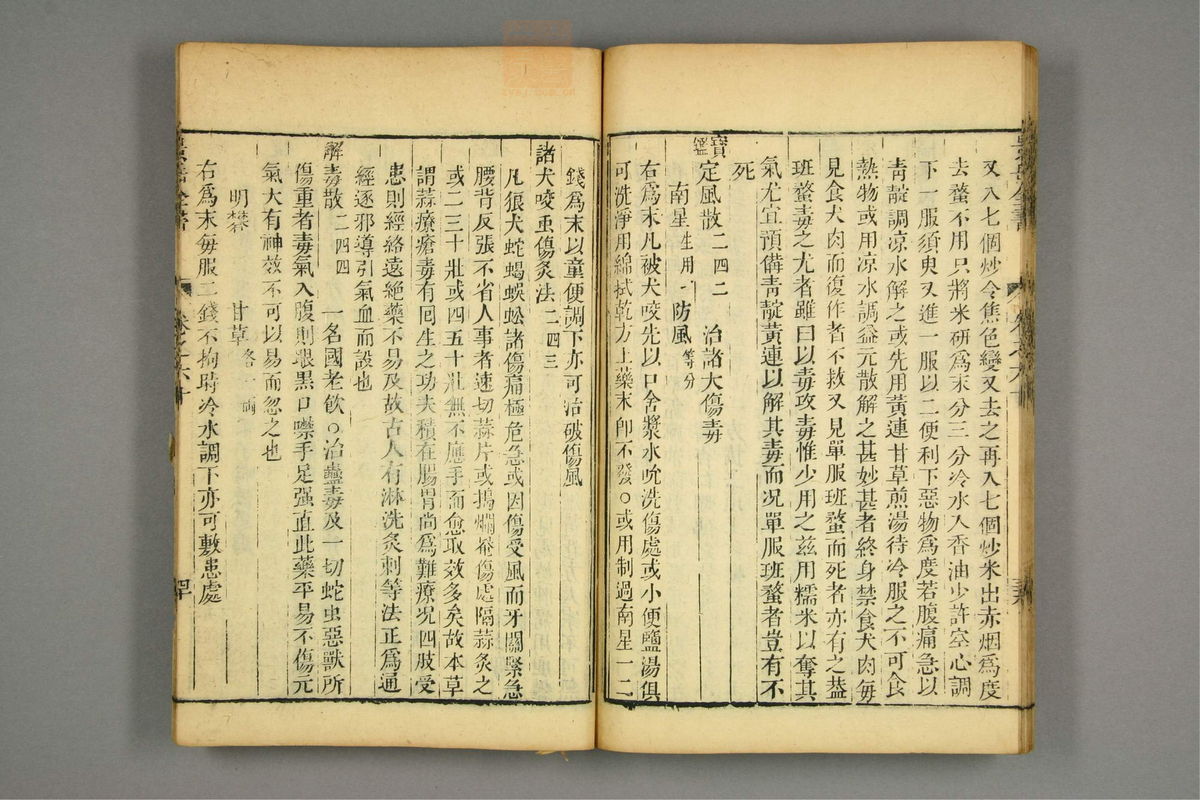 又入七個炒令焦色變又去之再入七個炒米出赤烟爲度
去蝥不用只將米研爲末分三分冷水入香油少許空心調
下一服須臾又進一服以二便利下惡物爲度若腹痛急以
靑靛調凉水解之或先用黃連甘草煎湯待冷服之不可食
熱物或用凉水調益元散解之甚妙甚者終身禁食犬肉每
見食犬肉而復作者不救又見單服班蝥而死者亦有之葢
班蝥毒之尤者雖曰以毒攻毒惟少用之兹用糯米以奪其
氣尤宜預備靑靛黃連以解其毒而况單服班蝥者豈有不
死
寶鑑 定風散二四二 治諸犬傷毒
南星生用 防風等分
右爲末凡被犬咬先以口含漿水吮洗傷處或小便鹽湯俱
可洗淨用綿拭乾方上藥末卽不發○或用制過南星一二
錢爲末以童便調下亦可治破傷風
諸犬咬重傷灸法二四三
凡狼犬蛇蝎蜈蚣諸傷痛極危急或因傷受風而牙關緊急
腰背反張不省人事者速切蒜片或搗爛罨傷處隔蒜灸之
或二三十壯或四五十壯無不應手而愈取效多矣故本草
謂蒜療瘡毒有囘生之功夫積在腸胃尙爲難療况四肢受
患則經絡遠絶藥不易及故古人有淋洗灸刺等法正爲通
經逐邪導引氣血而設也
解毒散二四四 一名國老飮○治蠱毒及一切蛇虫惡獸所
傷重者毒氣入腹則眼黑口噤手足强直此藥平易不傷元
氣大有神效不可以易而忽之也
明礬 甘草各一兩
右爲末每服二錢不拘時冷水調下亦可敷患處